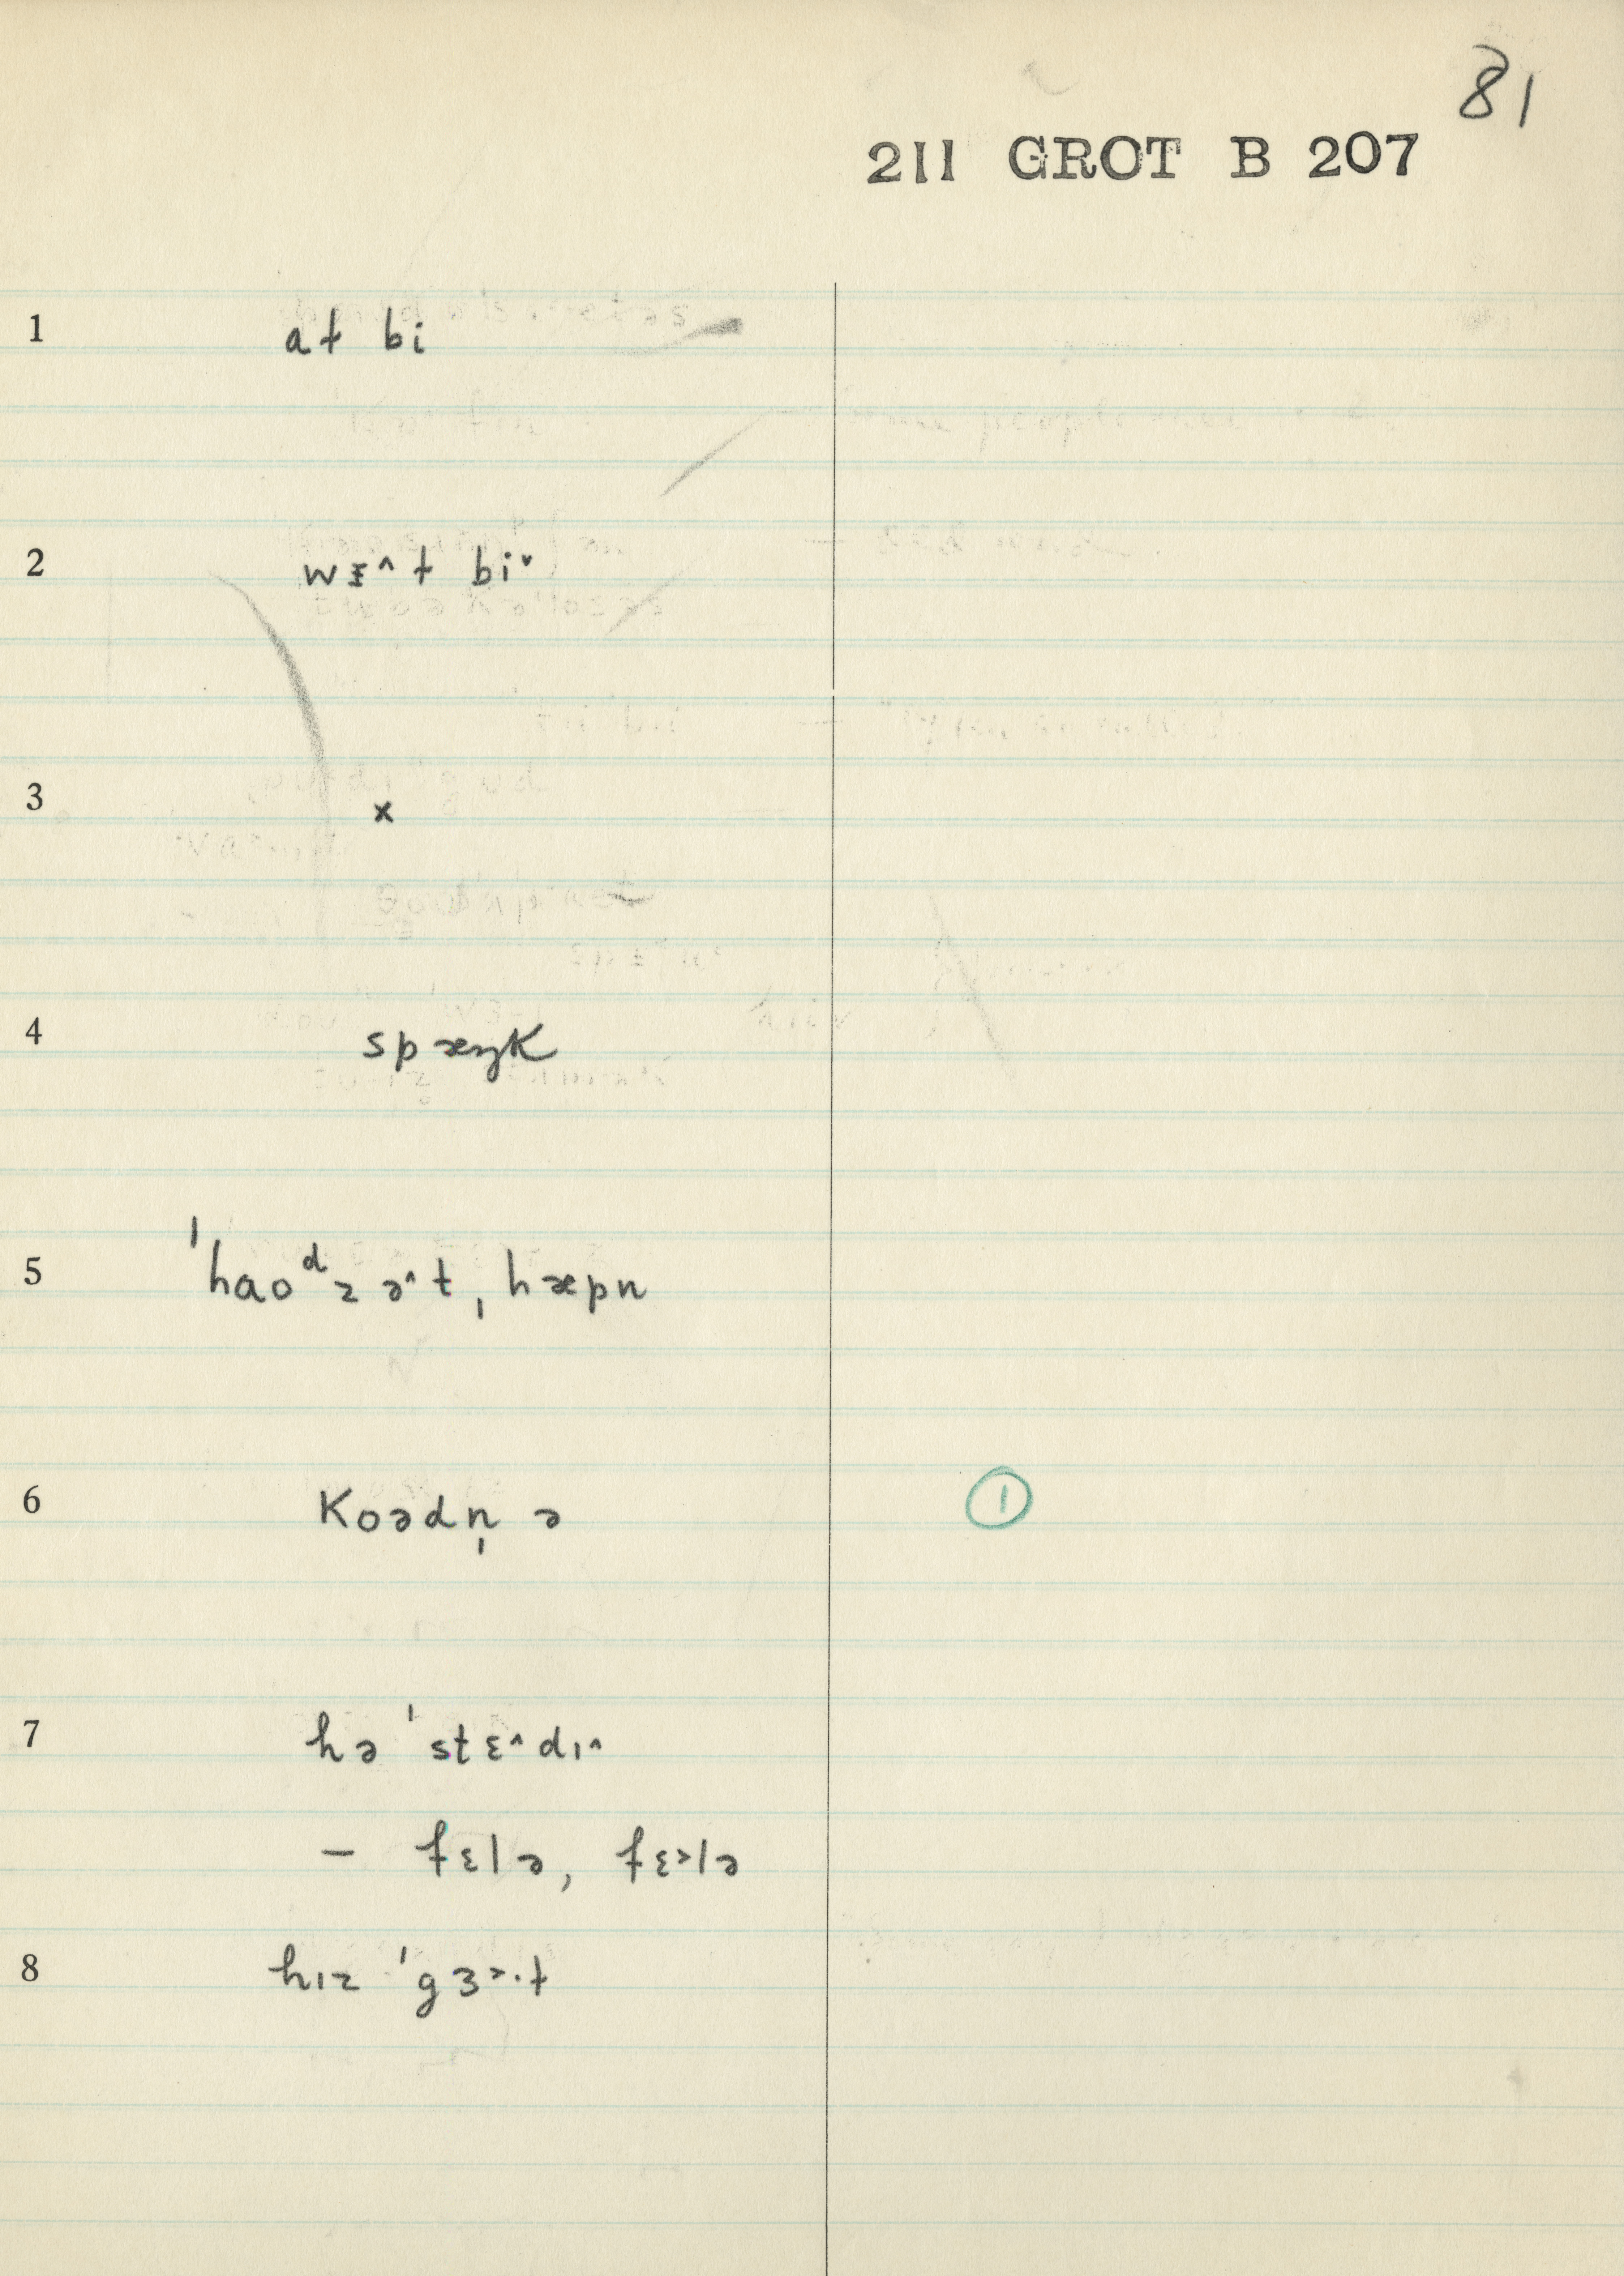 81
211 GROT B 207
1 at bi
2 wᴇ^t biˇ
3 x
4 spæŋk
5 ˈhaoᵈz ə^t ˌhæpn
6 koədn̩ ə ①
7 hə ˈstɛ^dɪ^
– fɛlə, fɛ>lə
8 hɪz ˈgɜ>·t